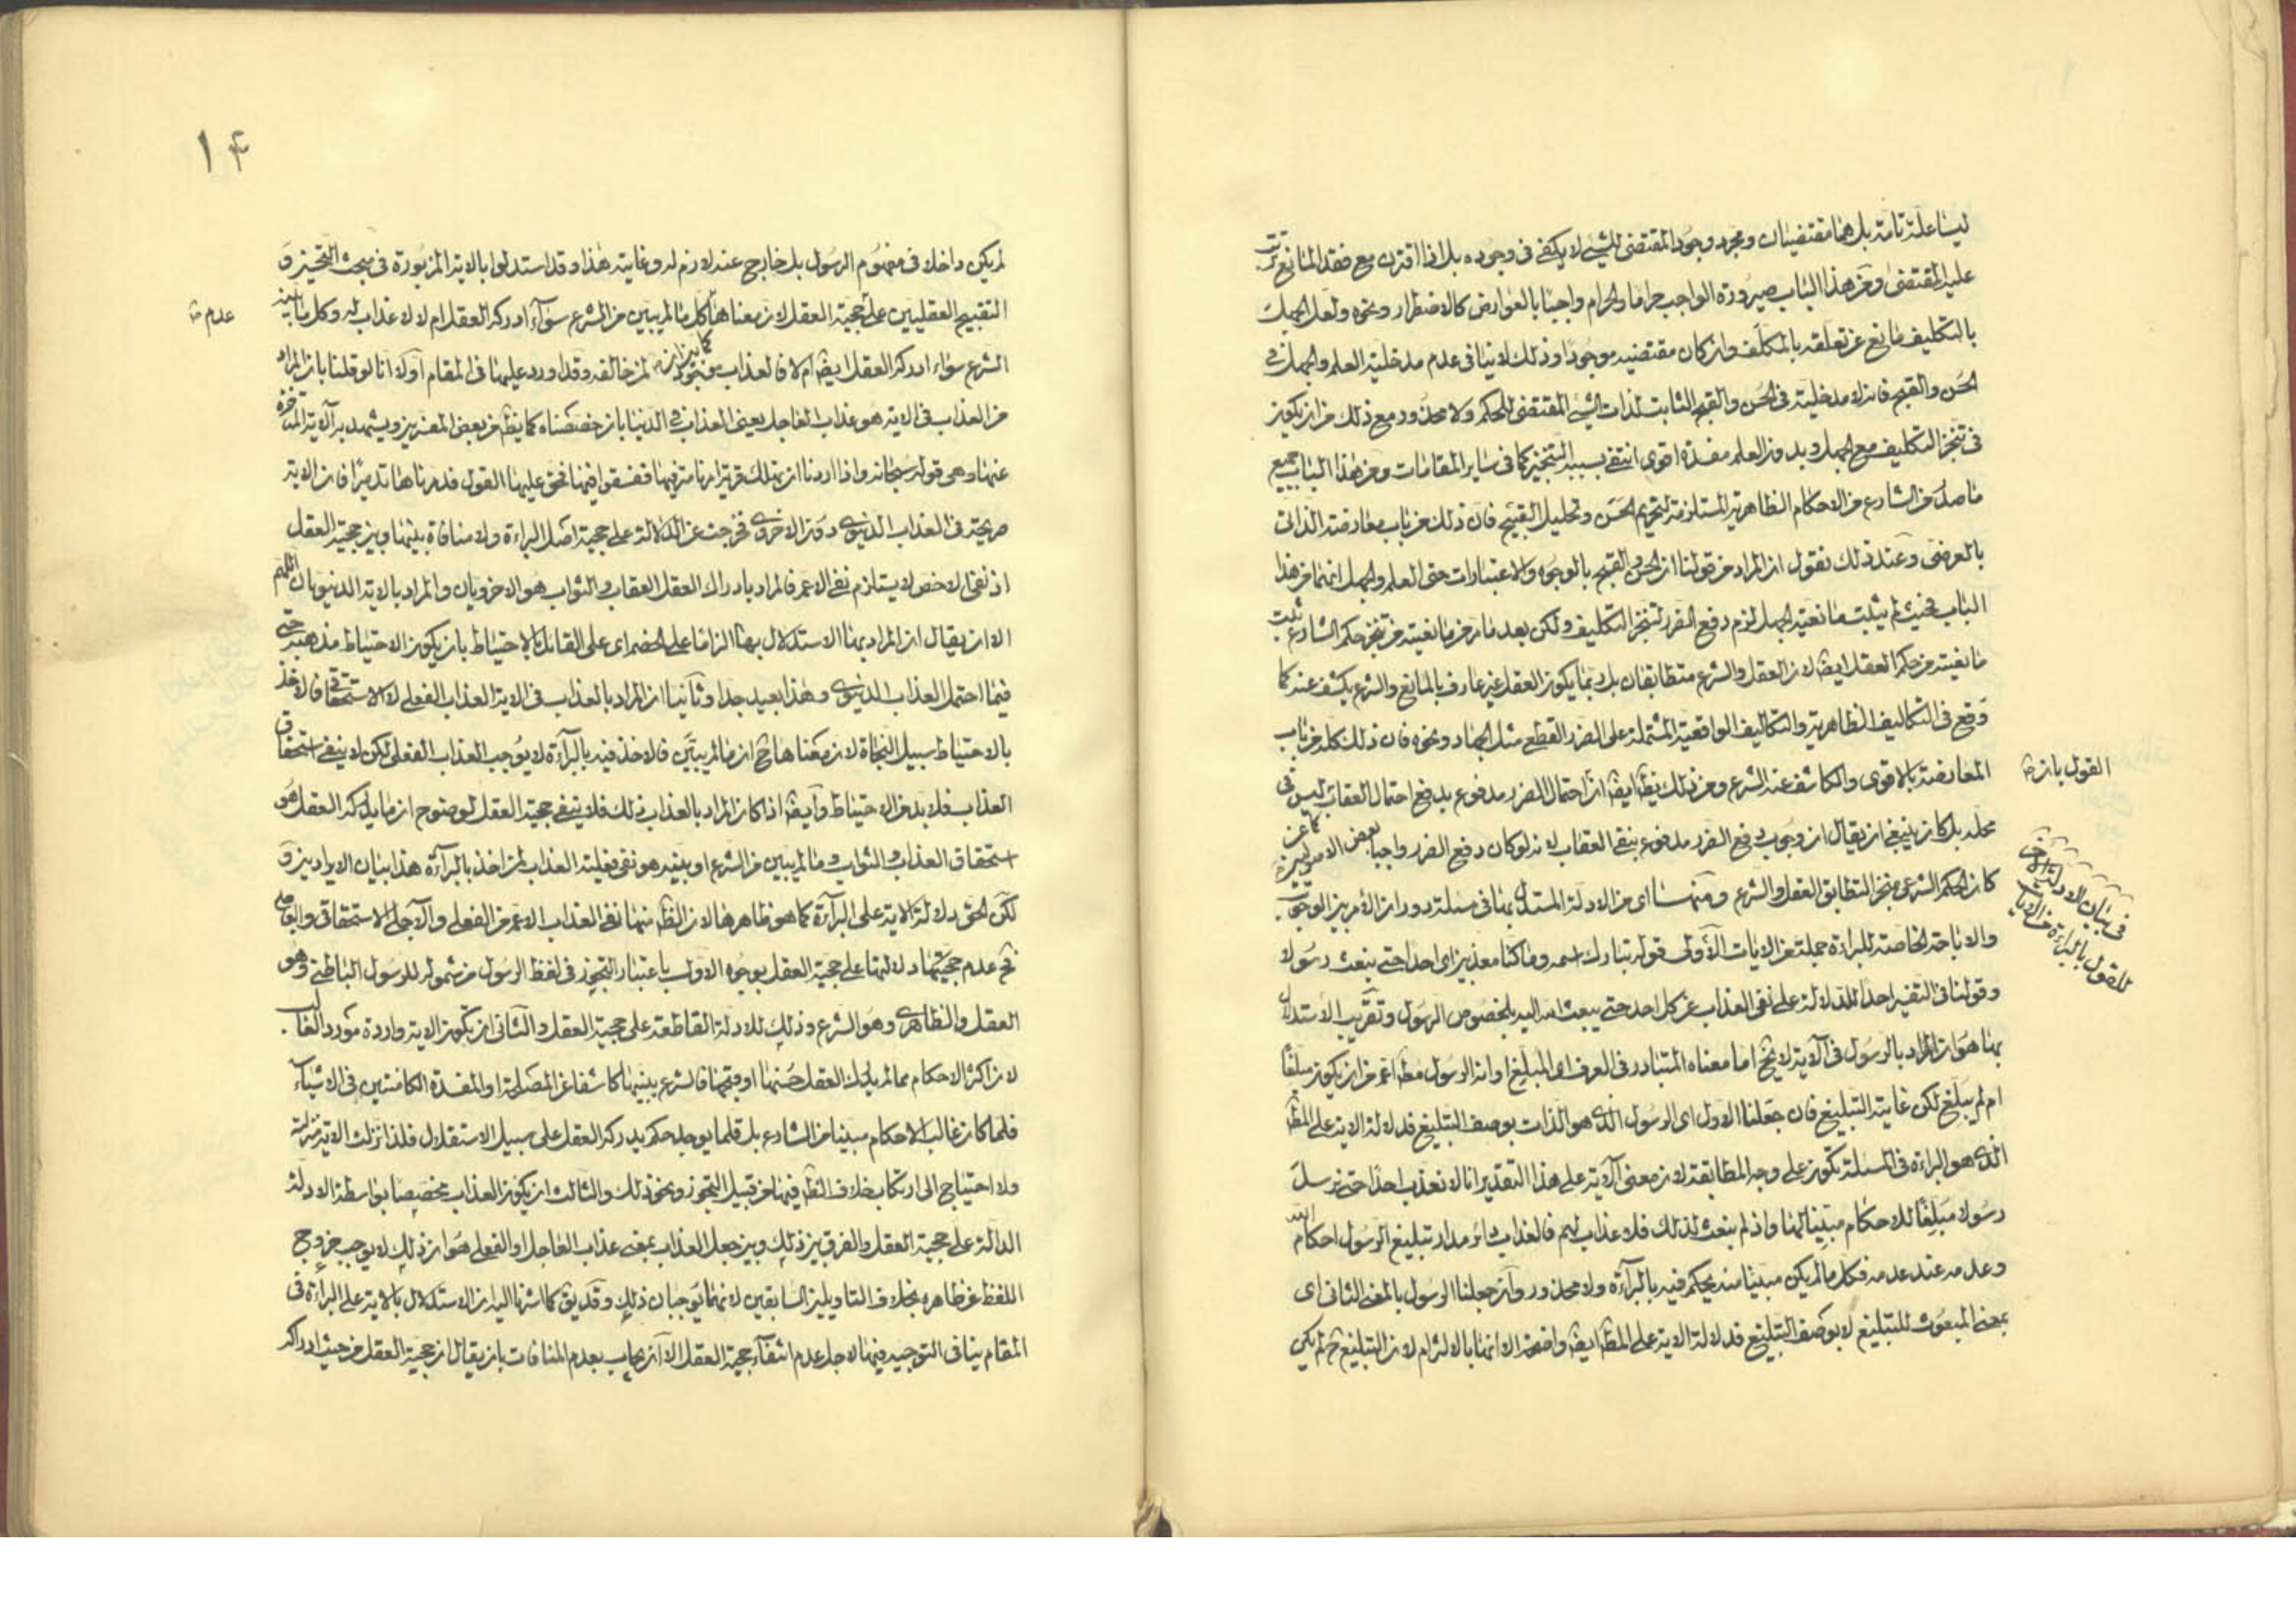 ليسا علة تامة بل هما مقتضيان ومجرد وجود المقتضى للشيء لا يكفى فى وجوده بل اذا اقترن مع فقد المانع
عليه المقتضى ومن هذا الباب صيرورة الواجب حراما والحرام واجبا بالعوارض كالاضطرار ونحوه ولعل الجهل
بالتكليف مانع عن تعلقه بالمكلف وان كان مقتضيه موجودا وذلك لا ينافى عدم مدخلية العلم والجهل فى
الحسن والقبح فانه لا مدخلية فى الحسن والقبح الثابت لذات الشيء المقتضى للحكم ولا محذور مع ذلك من ان يكون
فى تنجز التكليف مع الجهل وبدون العلم مفسدة اقوى انتفى بسببه التنجيز كما فى ساير المقامات ومن هذا الباب جميع
ما صدر من الشارع من الاحكام الظاهرية المستلزمة لتحريم الحسن وتحليل القبيح فان ذلك من باب معارضة الذاتى
بالعرضى وعند ذلك نقول ان المراد من قولنا ان الحسن والقبح بالوجوه والاعتبارات حتى العلم والجهل انهما من هذا
الباب فحيث لم يثبت مانعية الجهل لزم دفع الضرر لتنجز التكليف ولكن بعد ما من مانعيته من تنجز حكم الشارع ثبت
مانعيته من حكم العقل ايضا لان العقل والشرع متطابقان بل ربما يكون العقل غير عارف بالمانع والشرع يكشف عنه كما
وقع فى التكاليف الظاهرية والتكاليف الواقعية المشتملة على الضرر القطعى مثل الجهاد ونحوه فان ذلك كله من باب
المعارضة بالاقوى والكاشف عنه الشرع ومن ذلك يظ ايضا ان احتمال الضرر مدفوع بدفع احتمال العقاب ليس فى
القول بان
محله بل كان ينبغى ان يقال ان وجوب دفع الضرر مدفوع بنفى العقاب لانه لو كان دفع الضرر واجبا
كان الحكم الشرعى منجزا لتطابق العقل والشرع ومنها اى من الادلة المستدل بها فى مسئلة دوران الامر بين الوجوب
فى بيان الادلة
للقول بالبراءة من الايات
والاباحة الخاصة للبراءة جملة من الايات الاولى قوله تبارك اسمه وما كنا معذبين اى احدا حتى نبعث رسولا
وقولنا فى التفسير احدا للدلالة على نفى العذاب عن كل احد حتى يبعث الله اليه بخصوص الرسول وتقريب الاستدلال
بها هو ان المراد بالرسول فى الاية لا يخ اما معناه المتبادر فى العرف اى المبلغ او انه الرسول مط اعم من ان يكون مبلغا
ام لم يبلغ لكن غايته التبليغ فان جعلنا الاول اى الرسول الذى هو الذات بوصف التبليغ فدلالة الاية على المط
الذى هو البراءة فى المسئلة تكون على وجه المطابقة لان معنى الاية على هذا التقدير انا لا نعذب احدا حتى نرسل
رسولا مبلغا للاحكام مبينا لها واذ لم نبعث لذلك فلا عذاب لهم فالعذاب دائر مدار تبليغ الرسول احكام الله
وعدمه عند عدمه فكل ما لم يكن مبينا منه يحكم فيه بالبراءة ولا محذور وان جعلنا الرسول بالمعنى الثانى اى
بمعنى المبعوث للتبليغ لا بوصف التبليغ فدلالة الاية على المط ايضا واضحة الا انها بالالتزام لان التبليغ ح لم يكن
۱۴
لم يكن داخلا فى مفهوم الرسول بل خارج عنه لازم له وغايته هذا وقد استدلوا بالاية المزبورة فى مبحث التحسين و
التقبيح العقليين على حجية العقل لان معناها كل ما لم يبين من الشرع سواء ادركه العقل ام لا لا عذاب له وكل ما بينه
عدم
الشرع سواء ادركه العقل ايضا ام لا فالعذاب لمن خالفه وقد اورد عليها فى المقام اولا انا لو قلنا بان المراد
من العذاب فى الاية هو عذاب العاجل يعنى العذاب فى الدنيا بان خصصناه كما يظ من بعض المفسرين ويشهد به الاية المتاخرة
عنها وهى قوله سبحانه واذا اردنا ان نهلك قرية امرنا مترفيها ففسقوا فيها فحق عليها القول فدمرناها تدميرا فان الاية
صريحة فى العذاب الدنيوى دون الاخروى فخرجت عن الدلالة على حجية اصل البراءة ولا منافاة بينها وبين حجية العقل
اذ نفى الاخص لا يستلزم نفى الاعم فالمراد بادراك العقل العقاب والثواب هو الاخرويان والمراد بالاية الدنيويان اللهم
الا ان يقال ان المراد بها الاستدلال بها الزاما على الخصم اى على القائل بالاحتياط بان يكون الاحتياط مذهبه حتى
فيما احتمل العذاب الدنيوى وهذا بعيد جدا وثانيا ان المراد بالعذاب فى الاية العذاب الفعلى لا الاستحقاقى فالاخذ
بالاحتياط سبيل النجاة لان معناها ح ان ما لم يبين فالاخذ فيه بالبراءة لا يوجب العذاب الفعلى لكن لا ينفى استحقاق
العذاب فلا بد من الاحتياط وايضا اذا كان المراد بالعذاب ذلك فلا ينفى حجية العقل لوضوح ان ما يدركه العقل هو
استحقاق العذاب والثواب وما لم يبين من الشرع او بينه هو نفى فعلية العذاب لمن اخذ بالبراءة هذا بيان الايرادين و
لكن الحق دلالة الاية على البراءة كما هو ظاهرها لان الظ منها نفى العذاب الاعم من الفعلى والاجل الاستحقاقى والعاجل
ثم عدم حجيتها دلالتها على حجية العقل بوجوه الاول باعتبار التجوز فى لفظ الرسول من شموله للرسول الباطنى وهو
العقل والظاهرى وهو الشرع وذلك للادلة القاطعة على حجية العقل والثانى ان تكون الاية واردة مورد الغالب
لان اكثر الاحكام مما لم يدرك العقل حسنها او قبحها فالشرع يبينها كاشفا عن المصلحة او المفسدة الكامنتين فى الاشياء
فلما كان غالب الاحكام مبينا من الشارع بل قلما يوجد حكم يدركه العقل على سبيل الاستقلال فلذا نزلت الاية منزلته
ولا احتياج الى ارتكاب خلاف الظ فيها من قبيل التجوز ونحو ذلك والثالث ان يكون العذاب مخصصا بواسطة الادلة
الدالة على حجية العقل والفرق بين ذلك وبين جعل العذاب بمعنى عذاب العاجل او الفعلى هو ان ذلك لا يوجب خروج
اللفظ عن ظاهره بخلاف التاويلين السابقين لانهما يوجبان ذلك وقد يق كما اشرنا اليه ان الاستدلال بالاية على البراءة فى
المقام ينافى التوجيه فيها لاجل عدم انتفاء حجية العقل الا ان يجاب بعدم المنافات بان يقال ان حجية العقل من حيث ادراكه